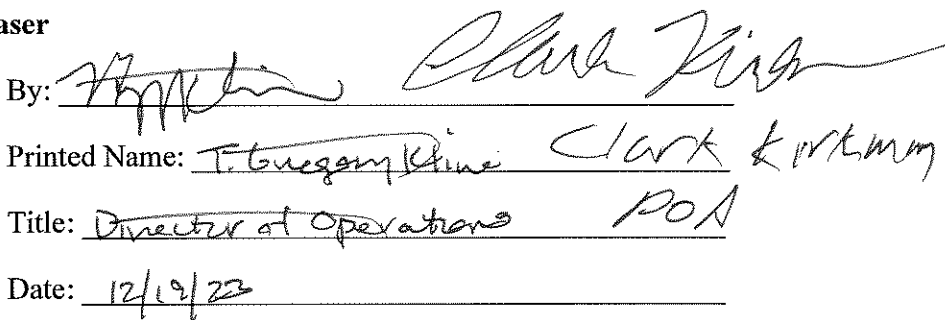 aser
By: Clark Kirkman
Printed Name: T. Gregory Kline Clark Kirkman
Title: Director of Operations POA
Date: 12/19/23